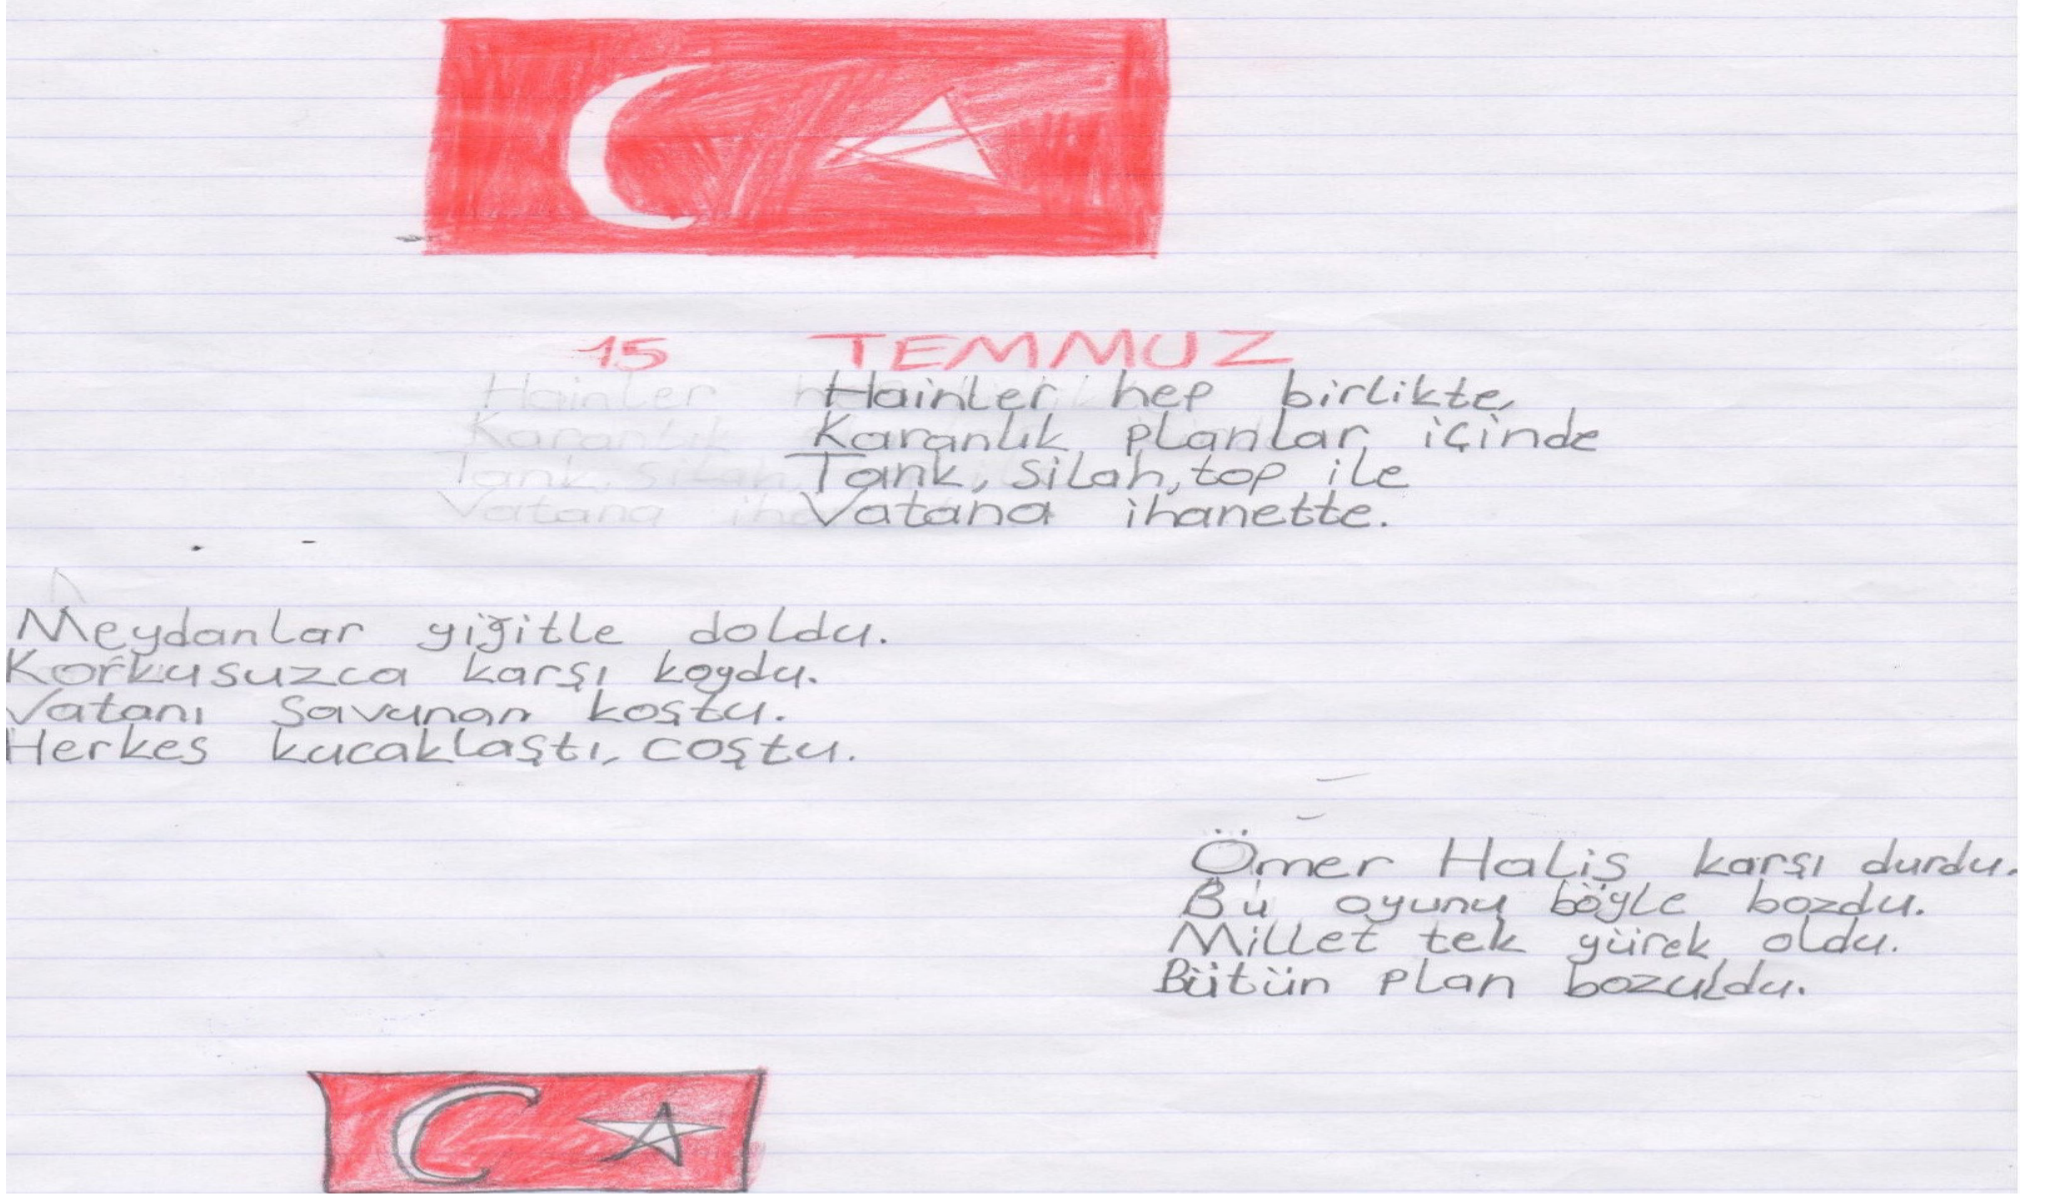 15 TEMMUZ
Hainler hep birlikte,
Karanlık planlar içinde
Tank, silah, top ile
Vatana ihanette.
Meydanlar yiğitle doldu.
Korkusuzca karşı koydu.
Vatanı savunan koştu.
Herkes kucaklaştı, coştu.
Ömer Halis karşı durdu.
Bu oyunu böyle bozdu.
Millet tek yürek oldu.
Bütün plan bozuldu.